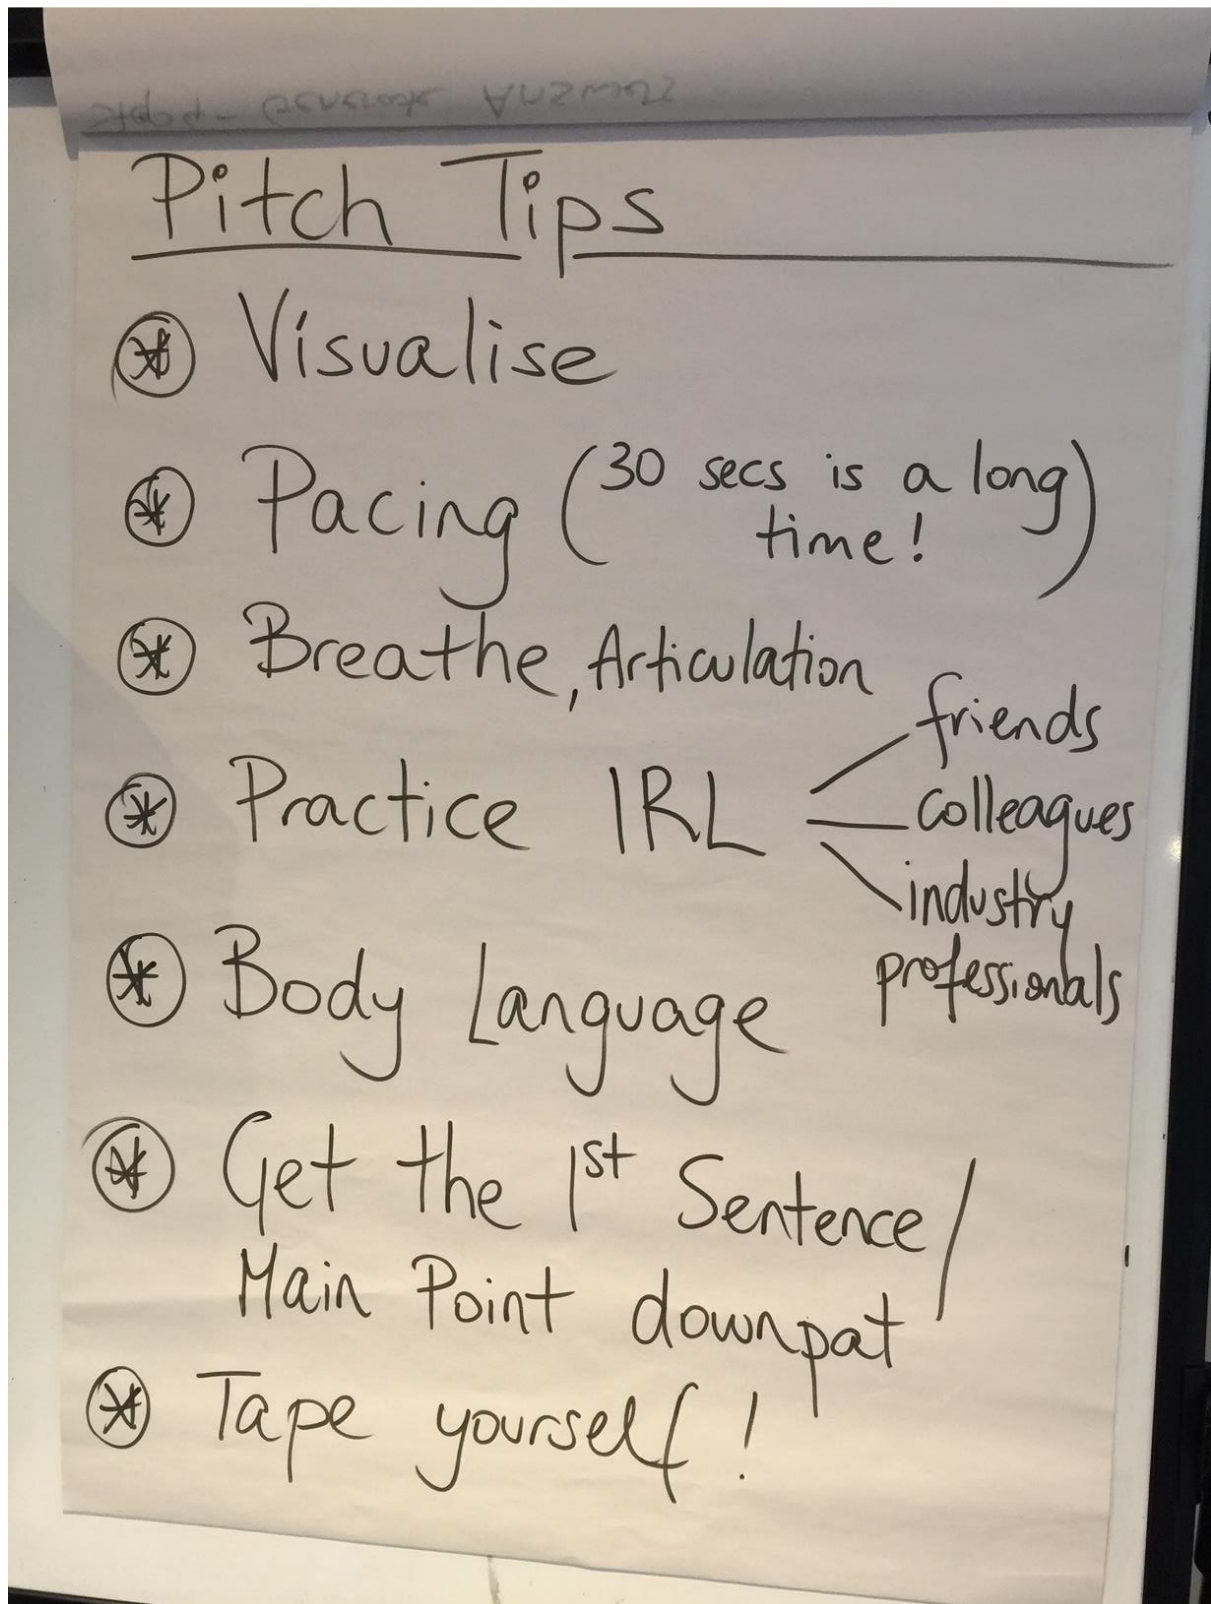 Pitch Tips
Visualise
Pacing (30 secs is a long
time!)
Breathe, Articulation
Practice IRL
friends
colleagues
industry
professionals
Body Language
Get the 1st Sentence/
Main Point downpat
Tape yourself!